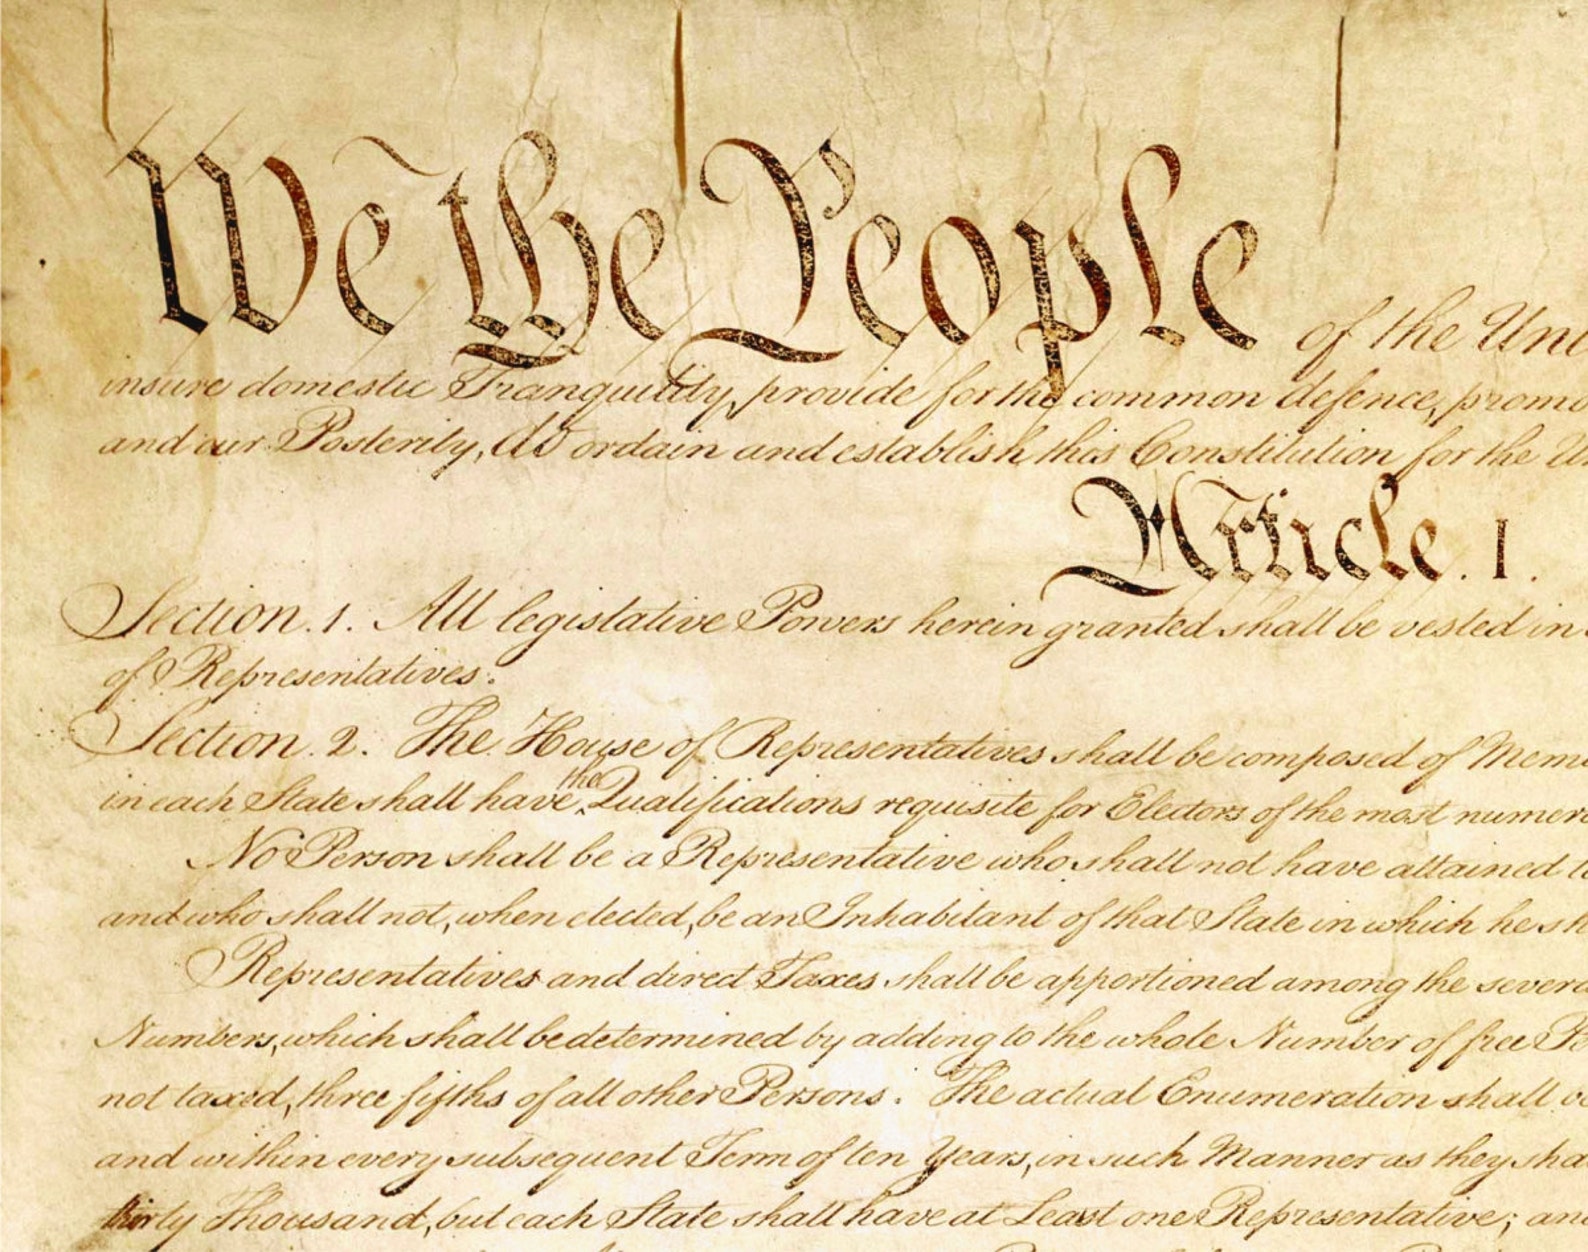 We the People of the Uni
insure domestic Tranquility, provide for the common defence, promo
and our Posterity, do ordain and establish this Constitution for the U
Article. I.
Section. 1. All legislative Powers herein granted shall be vested in
of Representatives.
Section. 2. The House of Representatives shall be composed of Mem
in each State shall have the Qualifications requisite for Electors of the most numero
No Person shall be a Representative who shall not have attained t
and who shall not, when elected, be an Inhabitant of that State in which he sh
Representatives and direct Taxes shall be apportioned among the severa
Numbers, which shall be determined by adding to the whole Number of free Pe
not taxed, three fifths of all other Persons. The actual Enumeration shall
and within every subsequent Term of ten Years, in such Manner as they sha
thirty Thousand, but each State shall have at Least one Representative; and